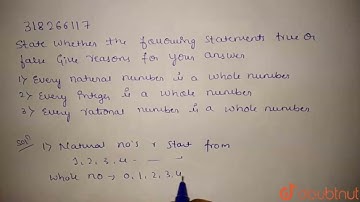 318266117
State whether the following statements true or
false Give reasons for your answer
1) Every natural number is a whole number
2) Every integer is a whole number
3) Every rational number is a whole number
Sol 1) Natural no's r start from
1, 2, 3, 4 - — -
Whole no → 0, 1, 2, 3, 4
doubtnut